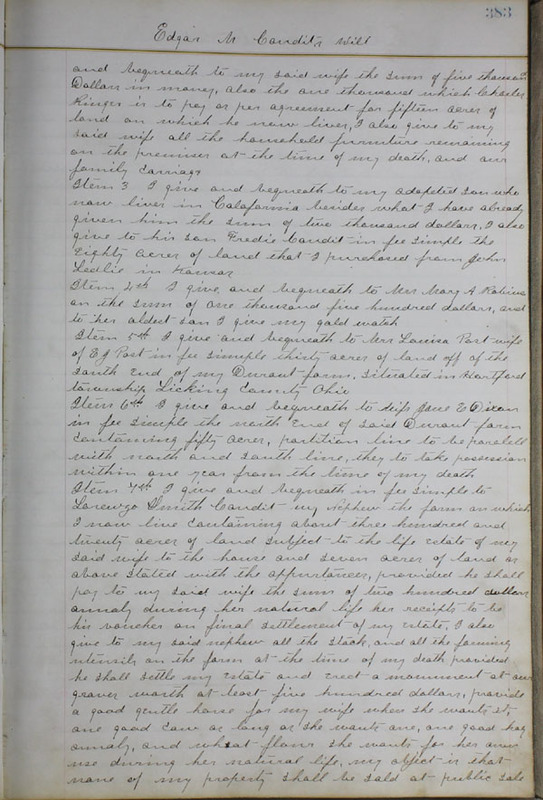 383
Edgar M Condit's Will
and beqneath to my said wife the sum of five thousand
Dollars in money, also the one thousand which Charles
Ringer is to pay as per agreement for fifteen acres of
land on which he now lives, I also give to my
said wife all the household furniture remaining
on the premises at the time of my death, and our
family Carriage
Item 3 I give and beqneath to my adopted son who
now lives in Calafornia besides what I have already
given him the sum of two thousand dollars, I also
give to his son Fredie Condit in fee simple the
Eighty acres of land that I purchased from John
Ledlie in Kansas
Item 4th I give and beqneath to Mrs Mary A
on the sum of one thousand five hundred dollars, and
to her oldest son I give my gold watch
Item 5th I give and beqneath to Mrs Louisa Post wife
of E J Post in fee simple thirty acres of land off of the
south End of my Durant farm, situated in Hartford
township Licking County Ohio
Item 6th I give and beqneath to Miss Jane E Dixon
in fee simple the north End of said Durant farm
Containing fifty acres, partition line to be paralell
with north and south line, they to take possession
within one year from the time of my death
Item 7th I give and beqneath in fee simple to
Lorenzo Smith Condit my Nephew the farm on which
I now live Containing about three hundred and
twenty acres of land subject to the life estate of my
said wife to the house and seven acres of land as
above stated with the appurtances, provided he shall
pay to my said wife the sum of two hundred dollars
annaly during her natural life her receipts to be
his voucher on final settlement of my estate, I also
give to my said nephew all the stock, and all the farming
utensils on the farm at the time of my death provided
he shall settle my Estate and erect a monument at our
graves worth at least five hundred dollars, provide
a good gentle horse for my wife when she wants it,
one good Cow as long as she wants one, one good hog
annaly, and what flour she wants for her own
use during her natural life, my object is that
none of my property shall be sold at public sale